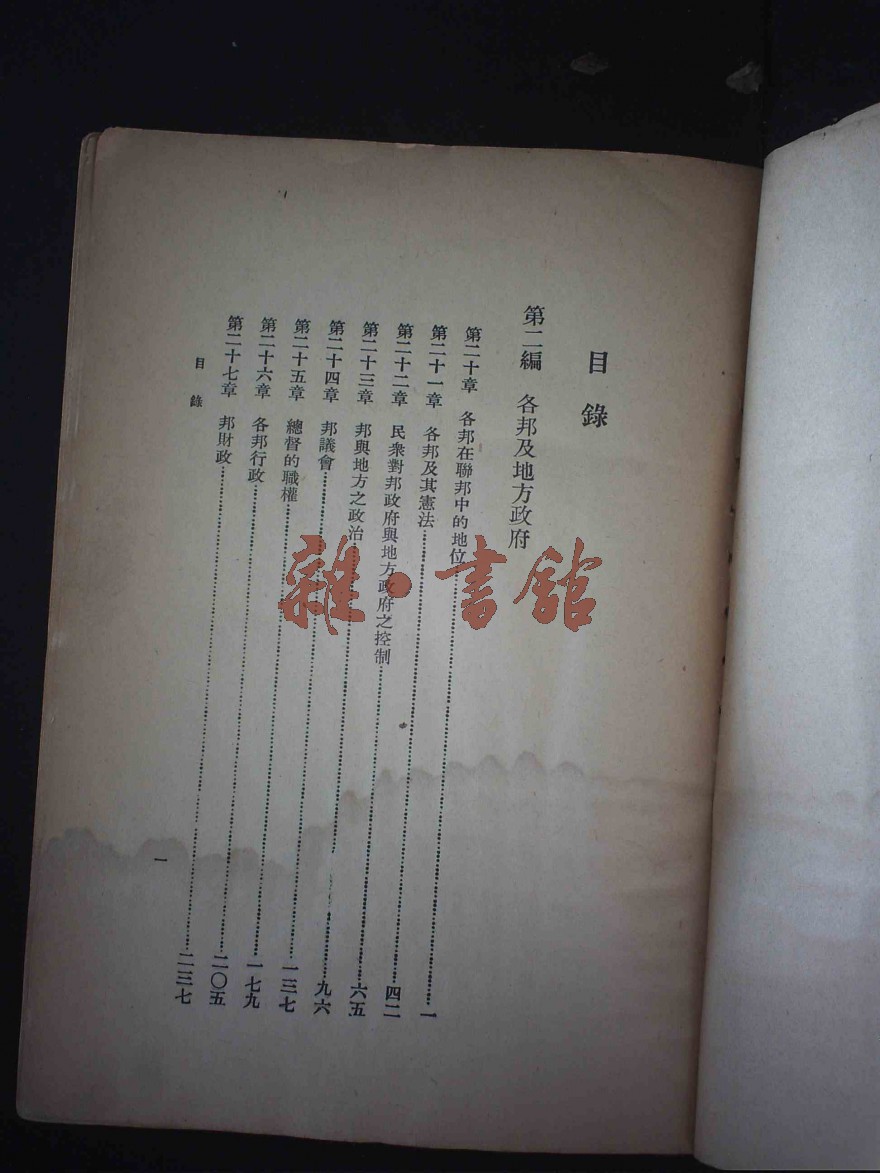 目錄
第二編 各邦及地方政府
第二十章 各邦在聯邦中的地位……一
第二十一章 各邦及其憲法……四二
第二十二章 民衆對邦政府與地方政府之控制……六五
第二十三章 邦與地方之政治……九六
第二十四章 邦議會……一三七
第二十五章 總督的職權……一七九
第二十六章 各邦行政……二〇五
第二十七章 邦財政……二三七
目錄
一
雜·書舘